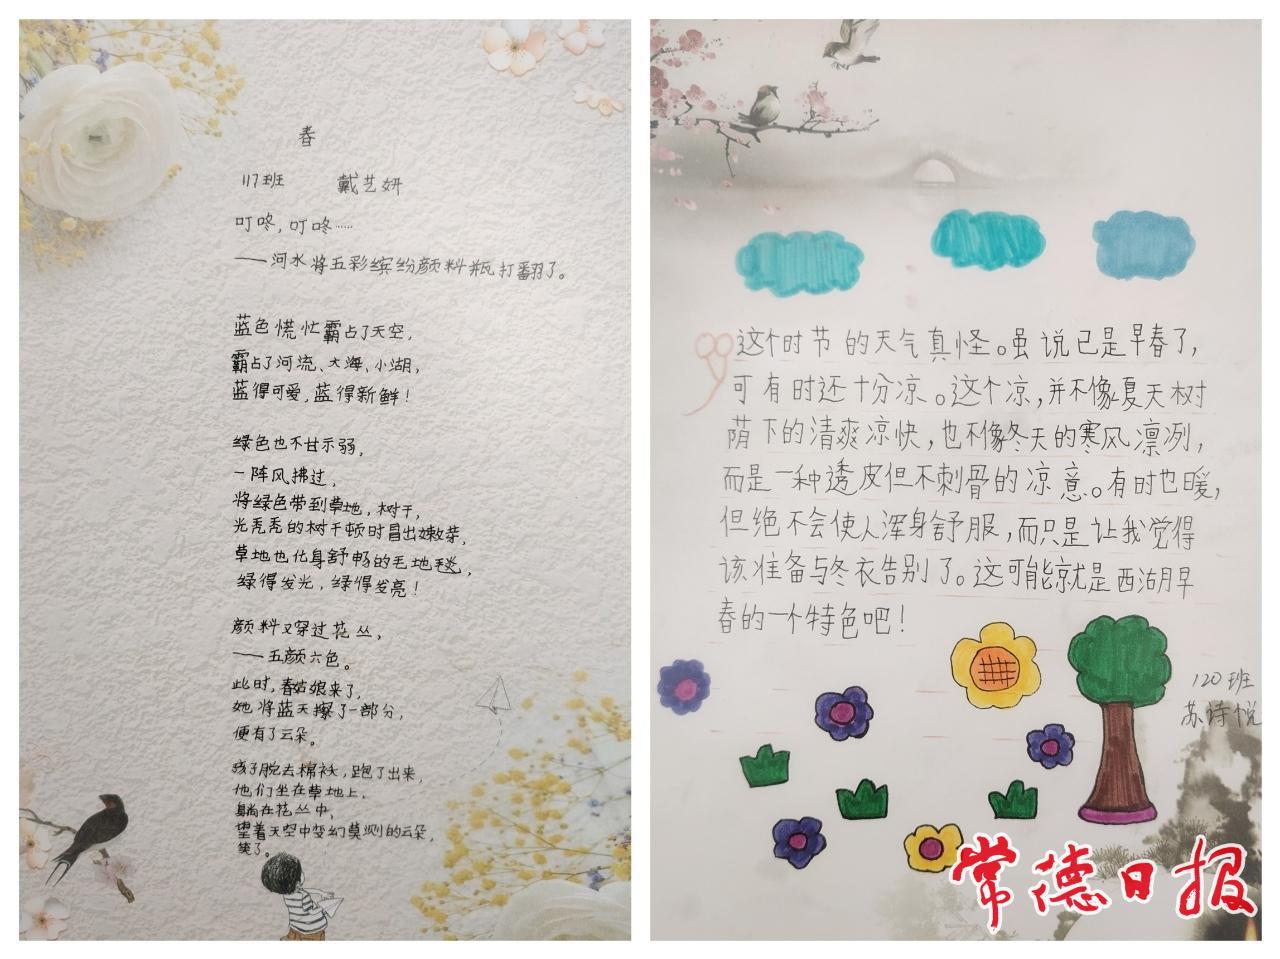 春
117班 戴艺妍
叮咚，叮咚……
——河水将五彩缤纷颜料瓶打翻了。
蓝色慌忙霸占了天空，
霸占了河流、大海、小湖，
蓝得可爱，蓝得新鲜！
绿色也不甘示弱，
一阵风拂过，
将绿色带到草地，树干，
光秃秃的树干顿时冒出嫩芽，
草地也化身舒畅的毛地毯，
绿得发光，绿得发亮！
颜料又穿过花丛，
——五颜六色。
此时，春姑娘来了，
她将蓝天擦了一部分，
便有了云朵。
孩子脱去棉袄，跑了出来，
他们坐在草地上，
躺在花丛中，
望着天空中变幻莫测的云朵，
笑了。
这个时节的天气真怪。虽说已是早春了，
可有时还十分凉。这个凉，并不像夏天树
荫下的清爽凉快，也不像冬天的寒风凛冽，
而是一种透皮但不刺骨的凉意。有时也暖，
但绝不会使人浑身舒服，而只是让我觉得
该准备与冬衣告别了。这可能就是西湖早
春的一个特色吧！
120班
苏诗悦
常德日报